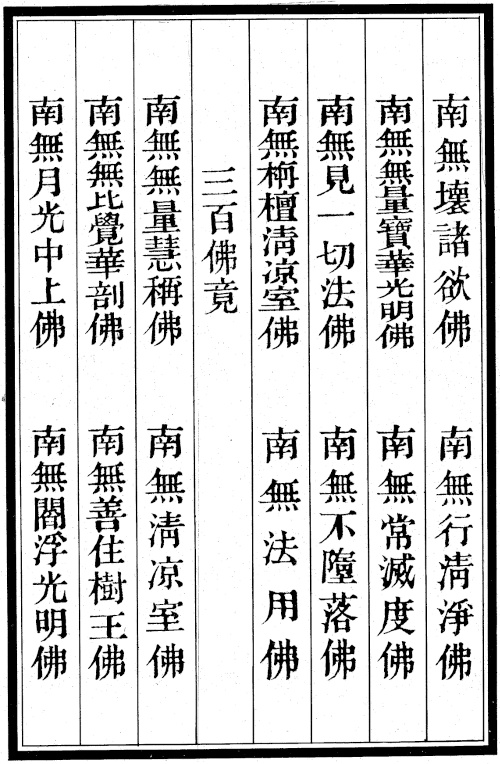 南無壞諸欲佛　南無行清淨佛
南無無量寶華光明佛　南無常滅度佛
南無見一切法佛　南無不墮落佛
南無栴檀清凉室佛　南無法用佛
三百佛竟
南無無量慧稱佛　南無清凉室佛
南無無比覺華剖佛　南無善住樹王佛
南無月光中上佛　南無閻浮光明佛